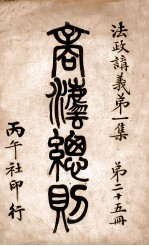 法政講義第一集　第二十五冊
商灋總則
丙午社印行